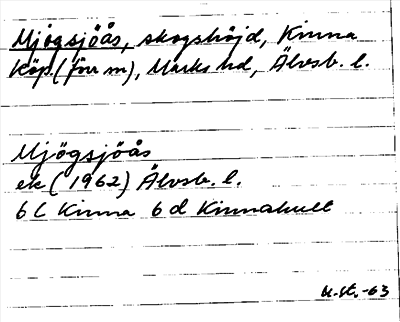 Mjögsjöås, skogshöjd, Kinna
Köp. (förr m), Marks hd, Älvsb. l.
Mjögsjöås
ek (1962) Älvsb. l.
6 C Kinna 6 d Kinnahult
-63